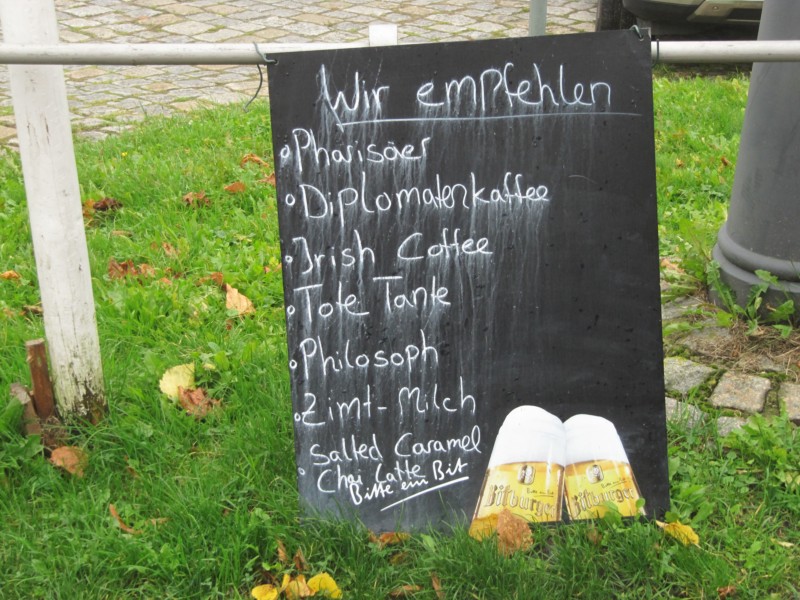 Wir empfehlen
Pharisäer
Diplomatenkaffee
Irish Coffee
Tote Tante
Philosoph
Zimt-Milch
Salted Caramel
Chai Latte
Bitte ein Bit
Bitburger Bitburger